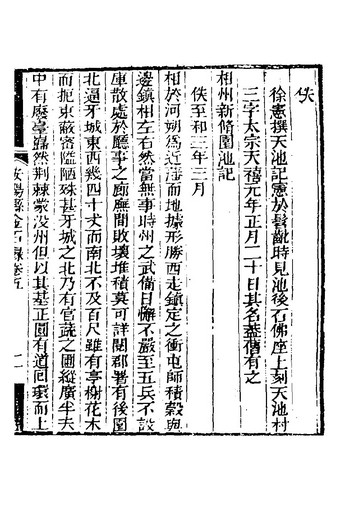 佚
徐憲撰天池記憲於髫齔時見池後石佛座上刻天池村
三字太宗天禧元年正月二十日其名葢僭有之
相州新脩園池記
佚至和三年三月
相於河朔爲近潽而地據形勝西走鎭定之衝屯師積糓與
邊鎭相左右然當無事時州之武備日懈不嚴至五兵不設
庫散處於廳事之廊廡間敗壞堆積莫可詳閱郡署有後園
北逼牙城東西幾四十丈而南北不及百尺雖有亭榭花木
而扼束蔽審隘陋殊甚牙城之北乃有官蔬之圃縱廣半夫
中有廢臺巋然荆棘蒙没州但以其基正圓有道囘環而上
安陽縣金石錄卷五